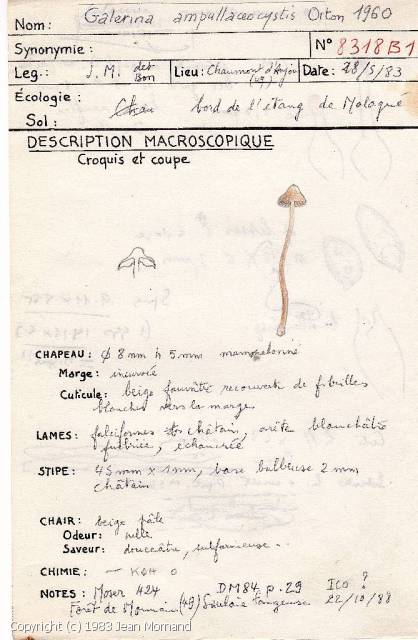 Nom: Galerina ampullaceocystis Orton 1960
Synonymie: N° 8318B1
Leg.: J. M. det Bon Lieu: Chaumont d'Anjou (49) Date: 28/5/83
Écologie: bord de l'étang de Malaguet
Sol:
DESCRIPTION MACROSCOPIQUE
Croquis et coupe
CHAPEAU: φ 8mm h 5mm mamelonné
Marge: incurvée
Cuticule: beige fauvâtre recouverte de fibrilles
blanches vers la marge
LAMES: falciformes châtain, arête blanchâtre
fimbriée, échancrée
STIPE: 45mm x 1mm, base bulbeuse 2mm
châtain
CHAIR: beige pâle
Odeur: nulle
Saveur: douceâtre, subfarineuse..
CHIMIE: - KOH 0
NOTES: Moser 424 DM84 p. 29 ICO ?
Forêt de (49) Saulaie fangeuse 22/10/88
Copyright (c) 1983 Jean Mornand